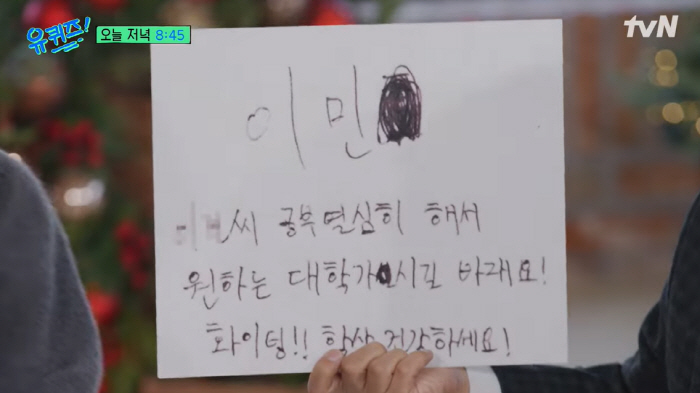 유퀴즈!
오늘 저녁 8:45
tvN
이민
씨 공부열심히 해서
원하는 대학가시길 바래요!
화이팅!! 항상 건강하세요!